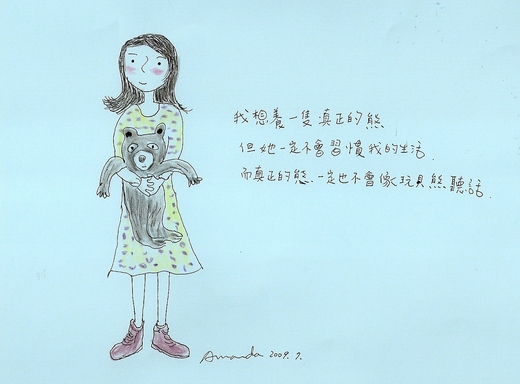 我想養一隻真正的熊
但她一定不會習慣我的生活.
而真正的熊.一定也不會像玩具熊聽話.
Amanda 2009.7.